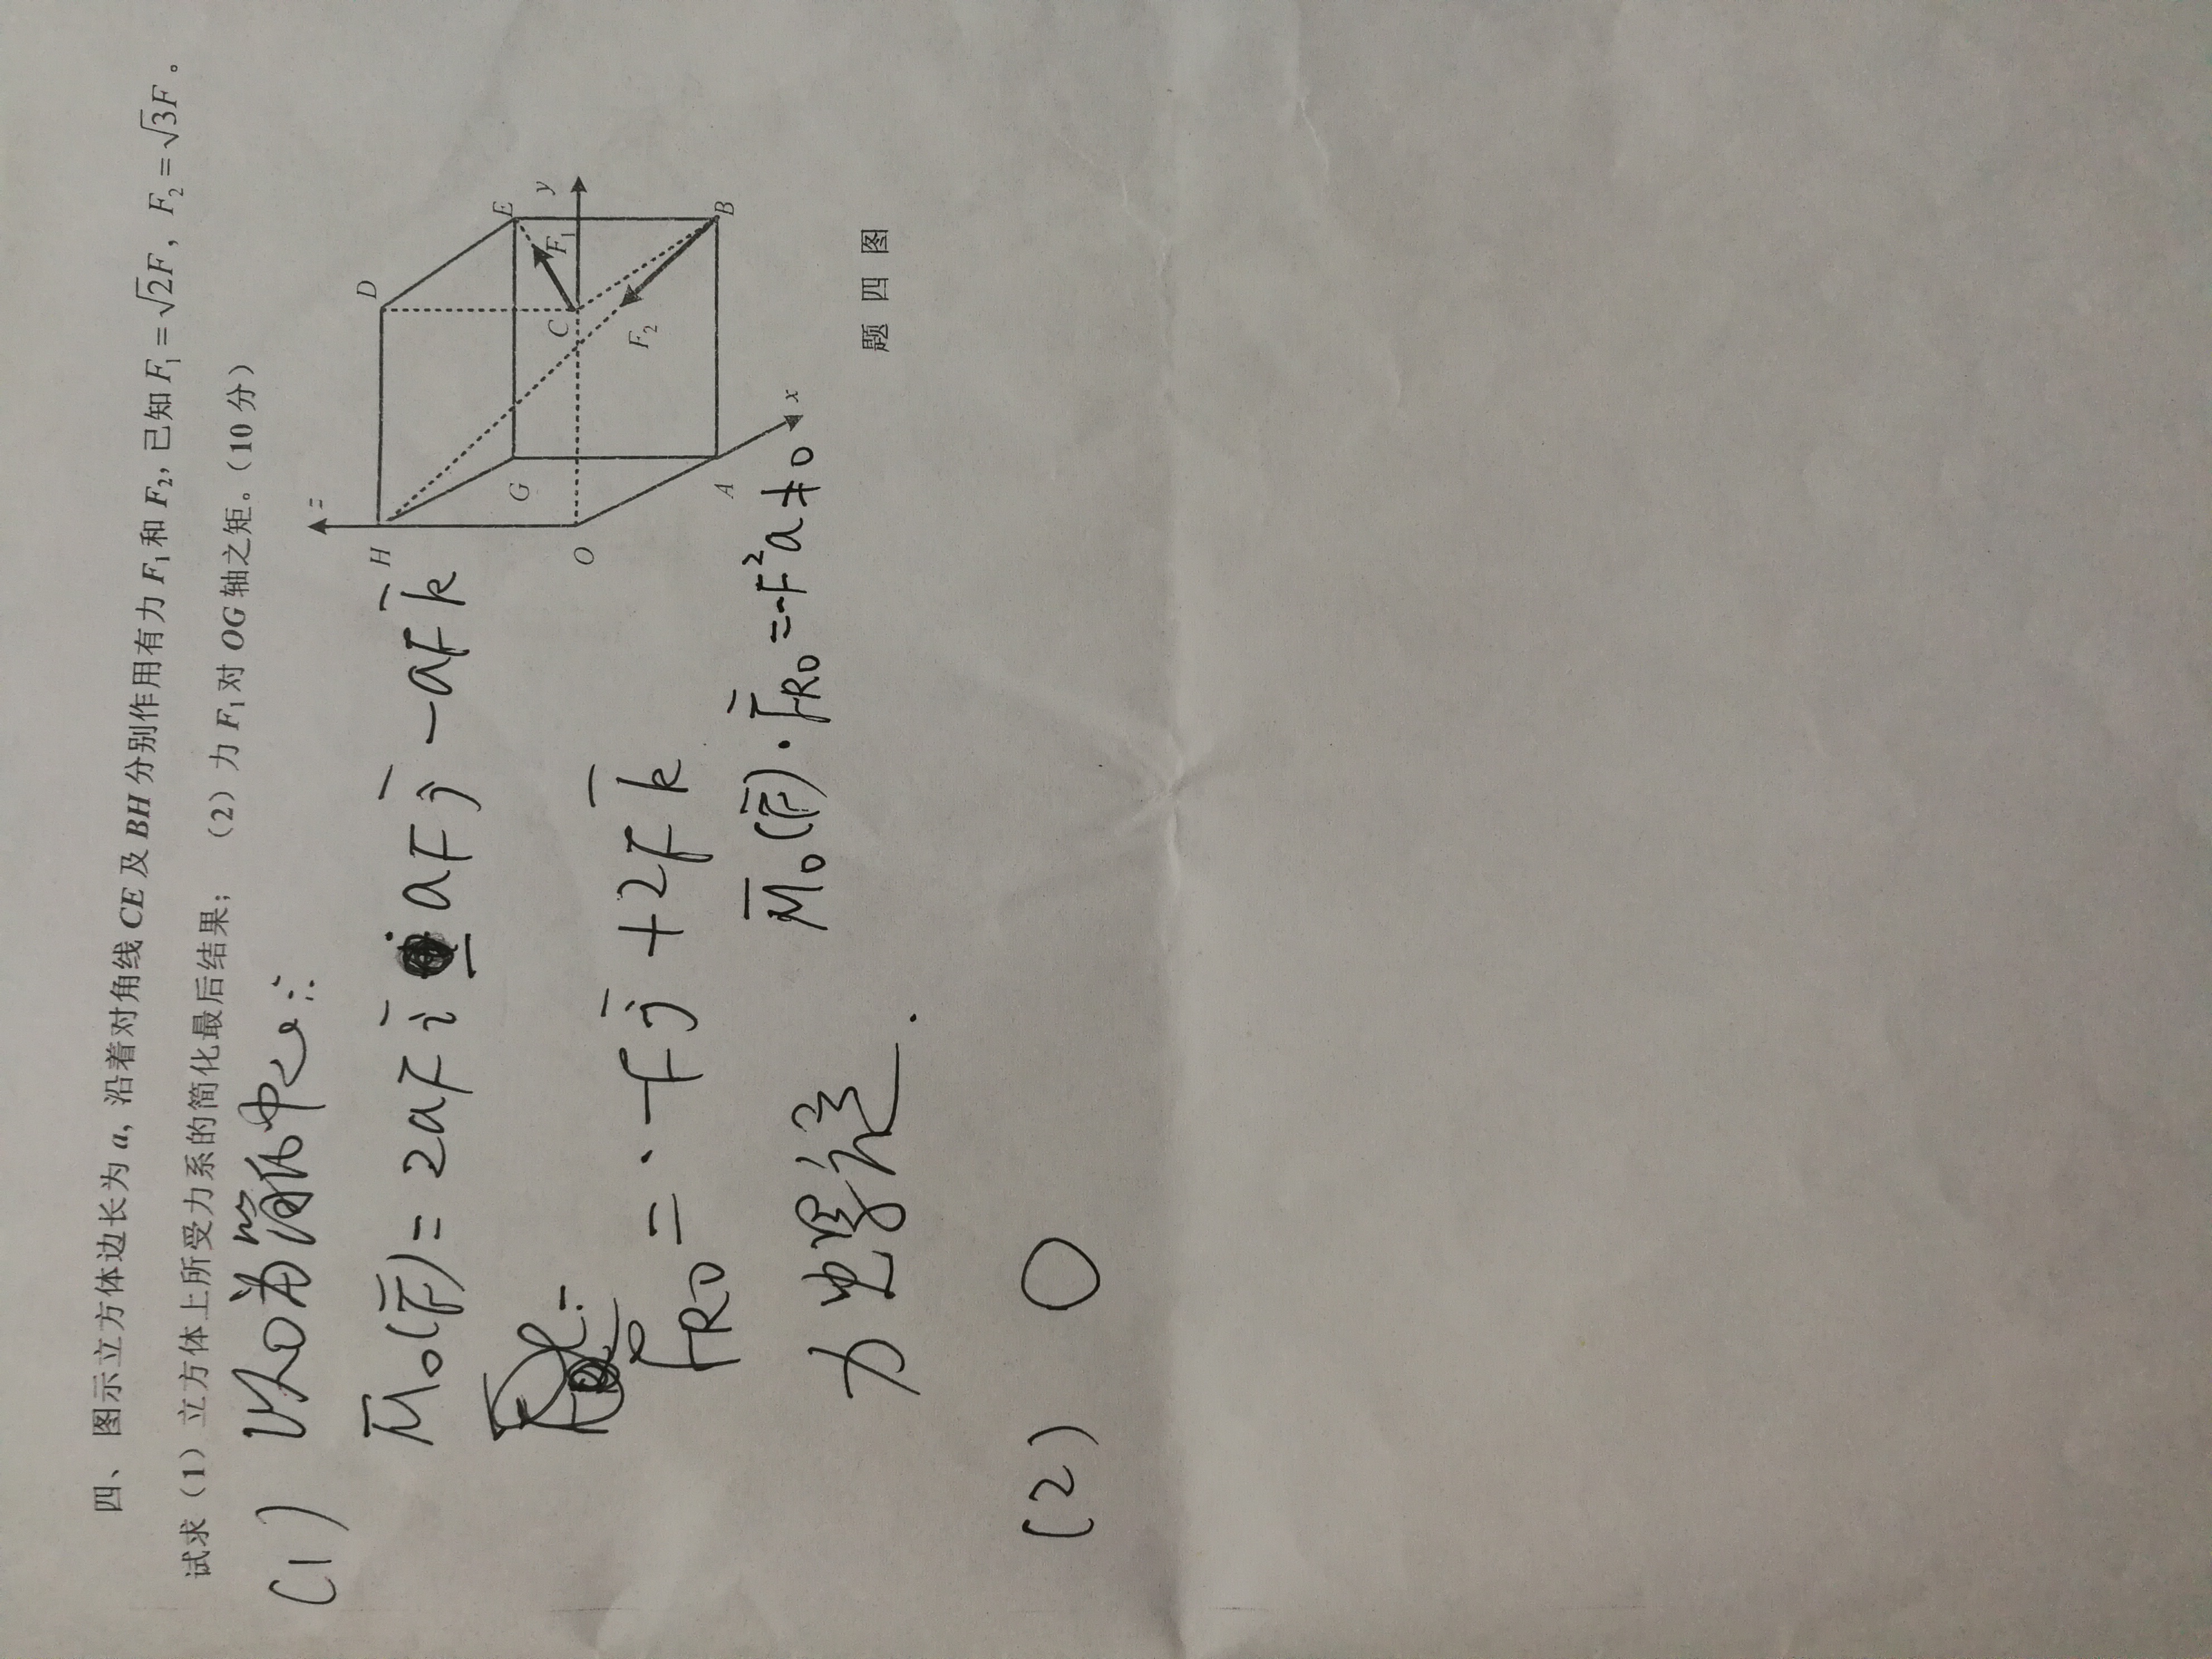 四、图示立方体边长为 a, 沿着对角线 CE 及 BH 分别作用有力 F₁和 F₂, 已知 F₁=√2F, F₂=√3F。
试求（1）立方体上所受力系的简化最后结果；（2）力 F₁对 OG 轴之矩。（10 分）
z
H
D
G
E
F₁
y
O
C
F₂
A
B
x
题 四 图
(1) 以O为简化中心:
M̄o(F̄)=2aF ī - aF j̄ -aF k̄
F̄RO = -F j̄ +2F k̄
M̄o(F̄)·F̄RO =-F²a≠0
力螺旋.
(2) 0